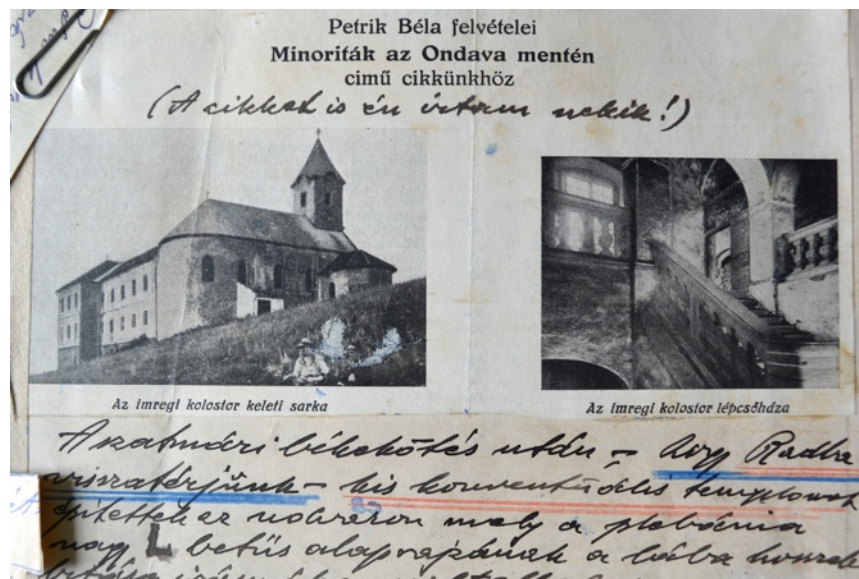 Petrik Béla felvételei
Minoriták az Ondava mentén
című cikkünkhöz
(A cikket is én írtam nekik!)
Az imregi kolostor keleti sarka
Az imregi kolostor lépcsőháza
A szatmári békekötés után – hogy Radra
visszatérjünk – kis konventuális templomot
építettek az udvaron mely a plébánia
nagy L betűs alaprajzának a